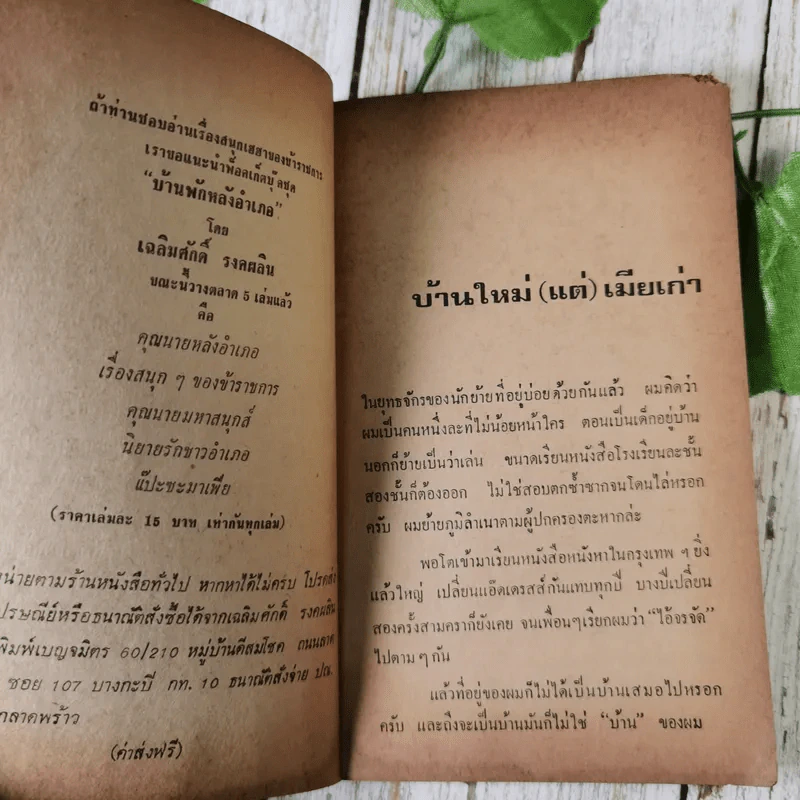 ถ้าท่านชอบอ่านเรื่องสนุกเฮฮาของข้าราชการ
เราขอแนะนำพ็อคเก็ตบุ๊คชุด
“บ้านพักหลังอำเภอ”
โดย
เฉลิมศักดิ์ รงคผลิน
ขณะนี้วางตลาด 5 เล่มแล้ว
คือ
คุณนายหลังอำเภอ
เรื่องสนุก ๆ ของข้าราชการ
คุณนายมหาสนุกส์
นิยายรักชาวอำเภอ
แป๊ะชะมาเพีย
(ราคาเล่มละ 15 บาท เท่ากันทุกเล่ม)
น่ายตามร้านหนังสือทั่วไป หากหาได้ไม่ครบ โปรดส่ง
ปรษณีย์หรือธนาณัติสั่งซื้อได้จากเฉลิมศักดิ์ รงคผลิน
พิมพ์เบญจมิตร 60/210 หมู่บ้านดีสมโชค ถนนลาด
ซอย 107 บางกะปิ กท. 10 ธนาณัติสั่งจ่าย ปณ.
ลาดพร้าว
(ค่าส่งฟรี)
บ้านใหม่ (แต่) เมียเก่า
ในยุทธจักรของนักย้ายที่อยู่บ่อยด้วยกันแล้ว ผมคิดว่า
ผมเป็นคนหนึ่งละที่ไม่น้อยหน้าใคร ตอนเป็นเด็กอยู่บ้าน
นอกก็ย้ายเป็นว่าเล่น ขนาดเรียนหนังสือโรงเรียนละชั้น
สองชั้นก็ต้องออก ไม่ใช่สอบตกซ้ำซากจนโดนไล่หรอก
ครับ ผมย้ายภูมิลำเนาตามผู้ปกครองตะหากล่ะ
พอโตเข้ามาเรียนหนังสือหนังหาในกรุงเทพ ฯ ยิ่ง
แล้วใหญ่ เปลี่ยนแอ๊ดเดรสส์กันแทบทุกปี บางปีเปลี่ยน
สองครั้งสามคราก็ยังเคย จนเพื่อนๆเรียกผมว่า “ไอ้จรจัด”
ไปตาม ๆ กัน
แล้วที่อยู่ของผมก็ไม่ได้เป็นบ้านเสมอไปหรอก
ครับ และถึงจะเป็นบ้านมันก็ไม่ใช่ “บ้าน” ของผม